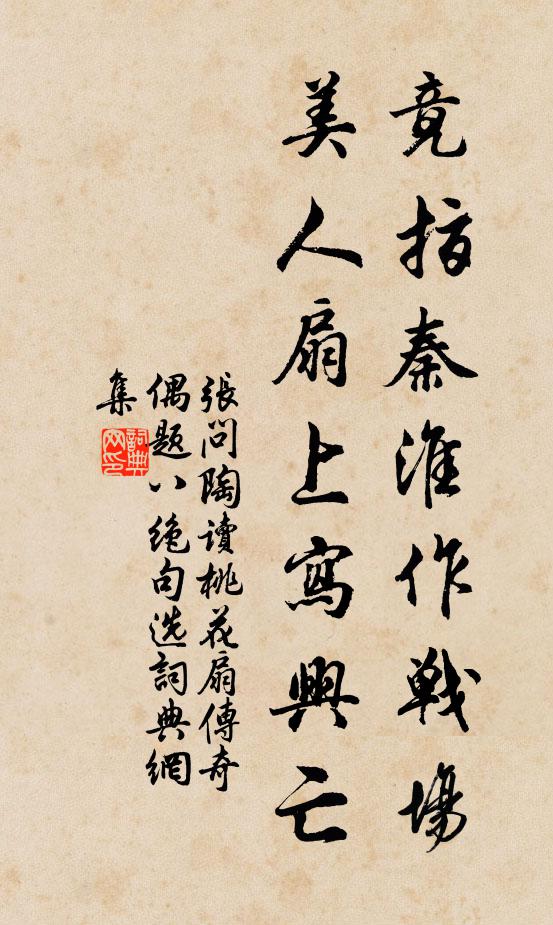 竟指秦淮作戰場
美人扇上寫興亡
張問陶讀桃花扇傳奇
偶題八絕句選詞典網
集
詞典网印